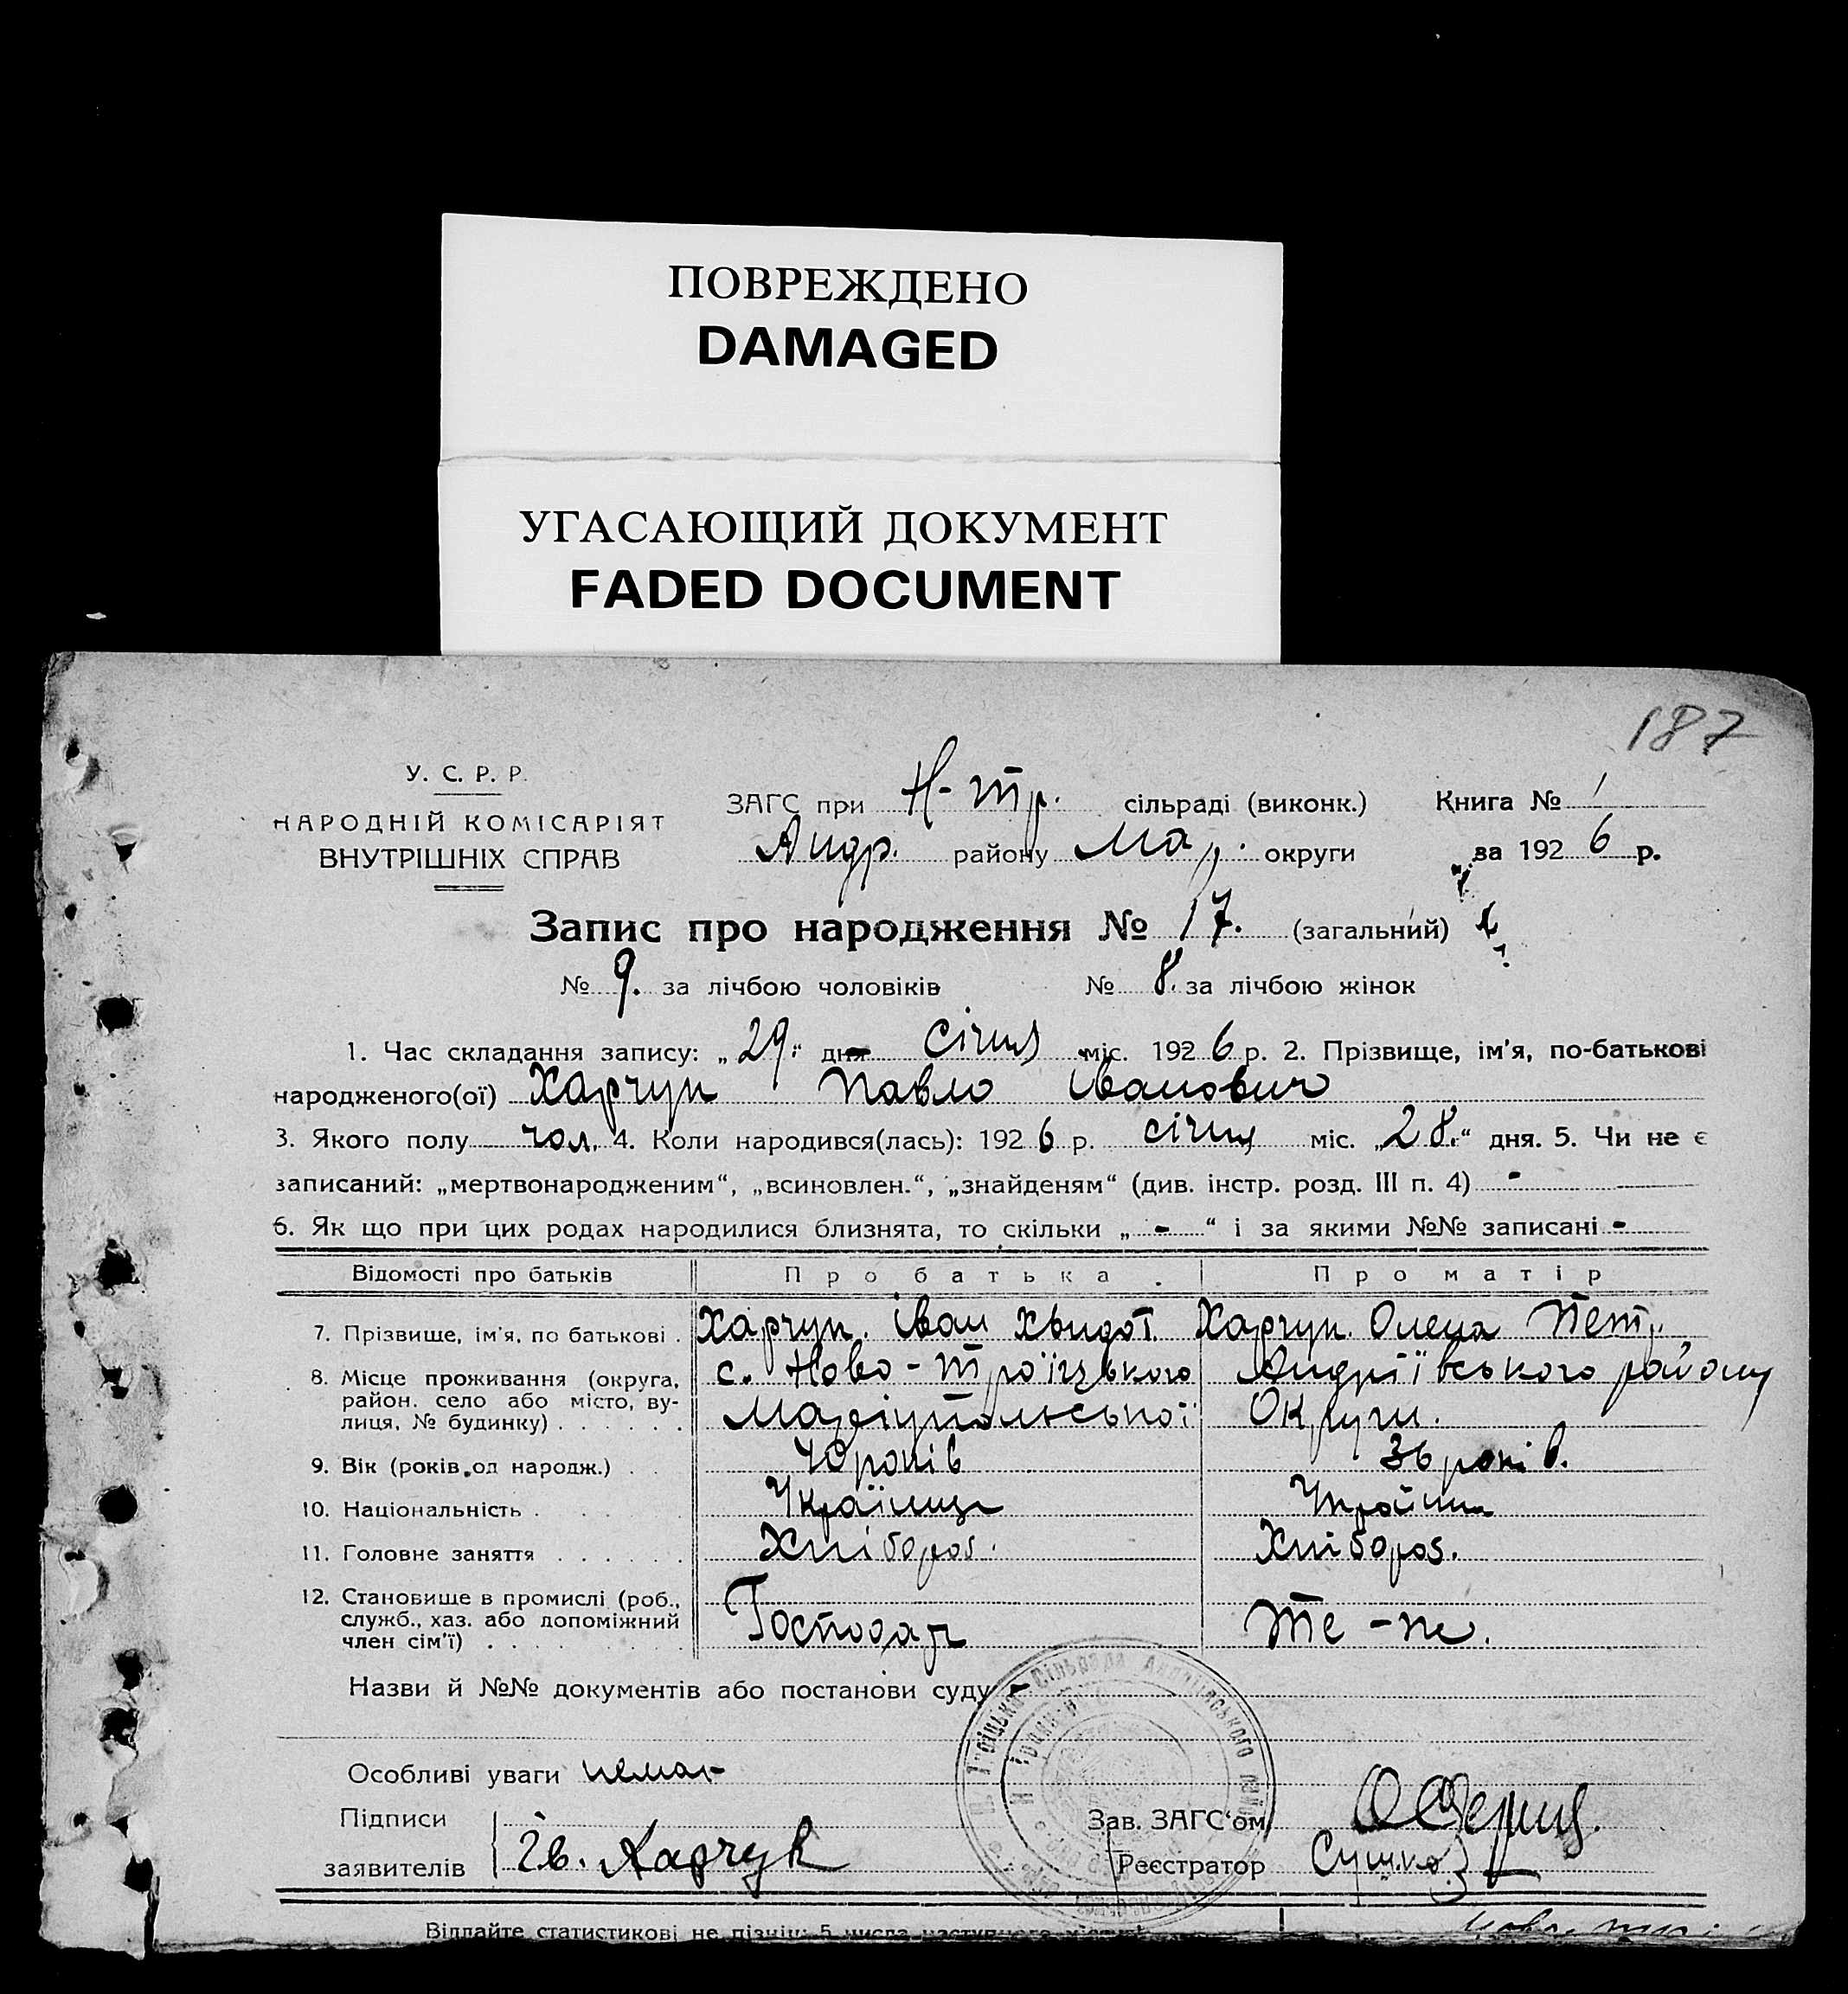 ПОВРЕЖДЕНО
DAMAGED
УГАСАЮЩИЙ ДОКУМЕНТ
FADED DOCUMENT
187
У. С. Р. Р.
НАРОДНІЙ КОМІСАРІЯТ
ВНУТРІШНІХ СПРАВ
ЗАГС при Н-Тр. сільраді (виконк.) Книга № 1
Андр. району Мар. округи за 1926 р.
Запис про народження № 17. (загальний)
№ 9. за лічбою чоловіків № 8. за лічбою жінок
1. Час складання запису: „29.“ дня січня міс. 1926 р. 2. Прізвище, ім'я, по-батькові
народженого(ої) Харчук Павло Іванович
3. Якого полу чол. 4. Коли народився(лась): 1926 р. січня міс. „28.“ дня. 5. Чи не є
записаний: „мертвонародженим“, „всиновлен.“, „знайденям“ (див. інстр. розд. III п. 4) -
6. Як що при цих родах народилися близнята, то скільки „-“ і за якими №№ записані -
Відомості про батьків Про батька. Про матір
7. Прізвище, ім'я, по батькові . Харчук. Іван Хвидот. Харчук. Олена Петр.
8. Місце проживання (округа, с. Ново-Троїцького Андріївського району
район, село або місто, ву-
лиця, № будинку) . . . . . . Маріупольської Округи.
9. Вік (років од народж.) . . 40 років 36 років.
10. Національність . Українць Україн
11. Головне заняття . . . . . . Хлібороб. Хлібороб.
12. Становище в промислі (роб.,
служб., хаз. або допоміжний
член сім'ї) . . . Господар Те-ж.
Назви й №№ документів або постанови суду -
Особливі уваги немає
Підписи
заявителів Ів. Харчук
Зав. ЗАГС'ом
Реєстратор Сушко
Троїцька Сільрада Андріївського
Віддайте статистикові не пізніш 5 числа наступного